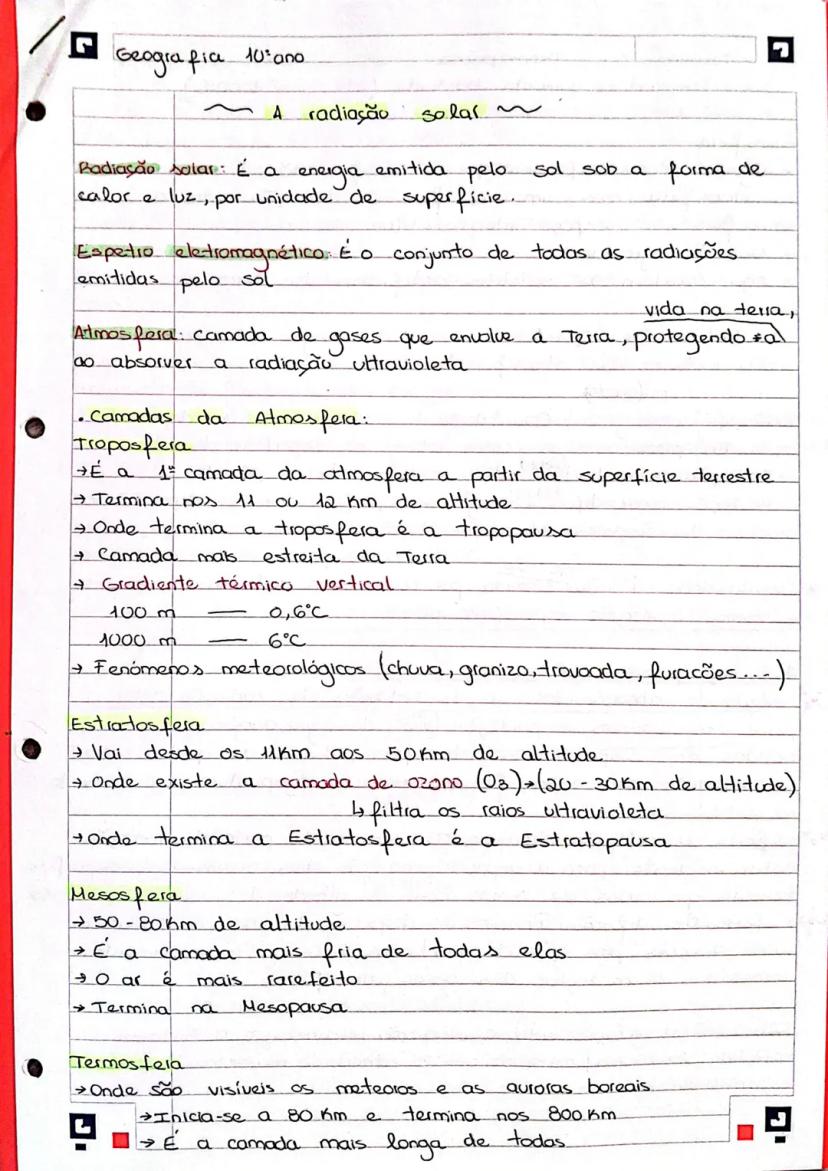 Geografia 10ºano
A radiação solar
Radiação solar: É a energia emitida pelo sol sob a forma de
calor e luz, por unidade de superfície.
Espetro eletromagnético: É o conjunto de todas as radiações
emitidas pelo sol
vida na terra,
Atmosfera: camada de gases que envolve a Terra, protegendo a
ao absorver a radiação ultravioleta
• Camadas da Atmosfera:
Troposfera
→ É a 1ª camada da atmosfera a partir da superfície terrestre
→ Termina nos 11 ou 12 Km de altitude
→ Onde termina a troposfera é a tropopausa
→ Camada mais estreita da Terra
→ Gradiente térmico vertical
100 m — 0,6°C
1000 m — 6°C
→ Fenómenos meteorológicos (chuva, granizo, trovoada, furacões...)
Estratosfera
→ Vai desde os 11Km aos 50Km de altitude
→ Onde existe a camada de ozono (O3)→(20 - 30Km de altitude)
↳ filtra os raios ultravioleta
→ Onde termina a Estratosfera é a Estratopausa
Mesosfera
→ 50 - 80Km de altitude
→ É a camada mais fria de todas elas
→ O ar é mais rarefeito
→ Termina na Mesopausa
Termosfera
→ Onde são visíveis os meteoros e as auroras boreais
→ Inicia-se a 80 Km e termina nos 800 Km
→ É a camada mais longa de todas